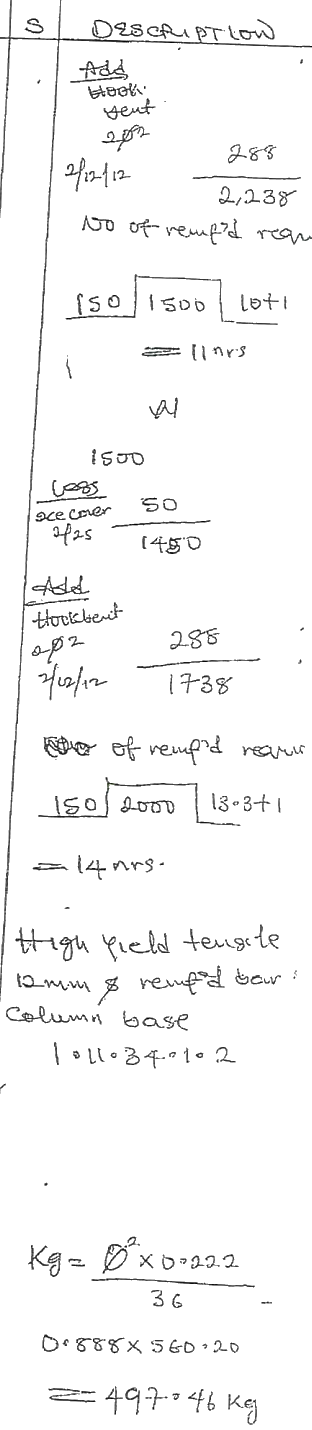 S DESCRIPTION
Add
Hook
bent
2ϕ2
2/12/12 288
2,238
No of reinf'd requ
150 1500 10+1
= 11nrs
W
1500
Less
50
2/25
1450
Add
Hook bent
2ϕ2 288
2/12/12 1738
of reinf'd requir
150 2000 13.3+1
= 14nrs.
High yield tensile
12mm ϕ reinf'd bar :
Column base
1.11.34.1.2
Kg = Ø² x 0.222
36
0.888 x 560.20
= 497.46 Kg